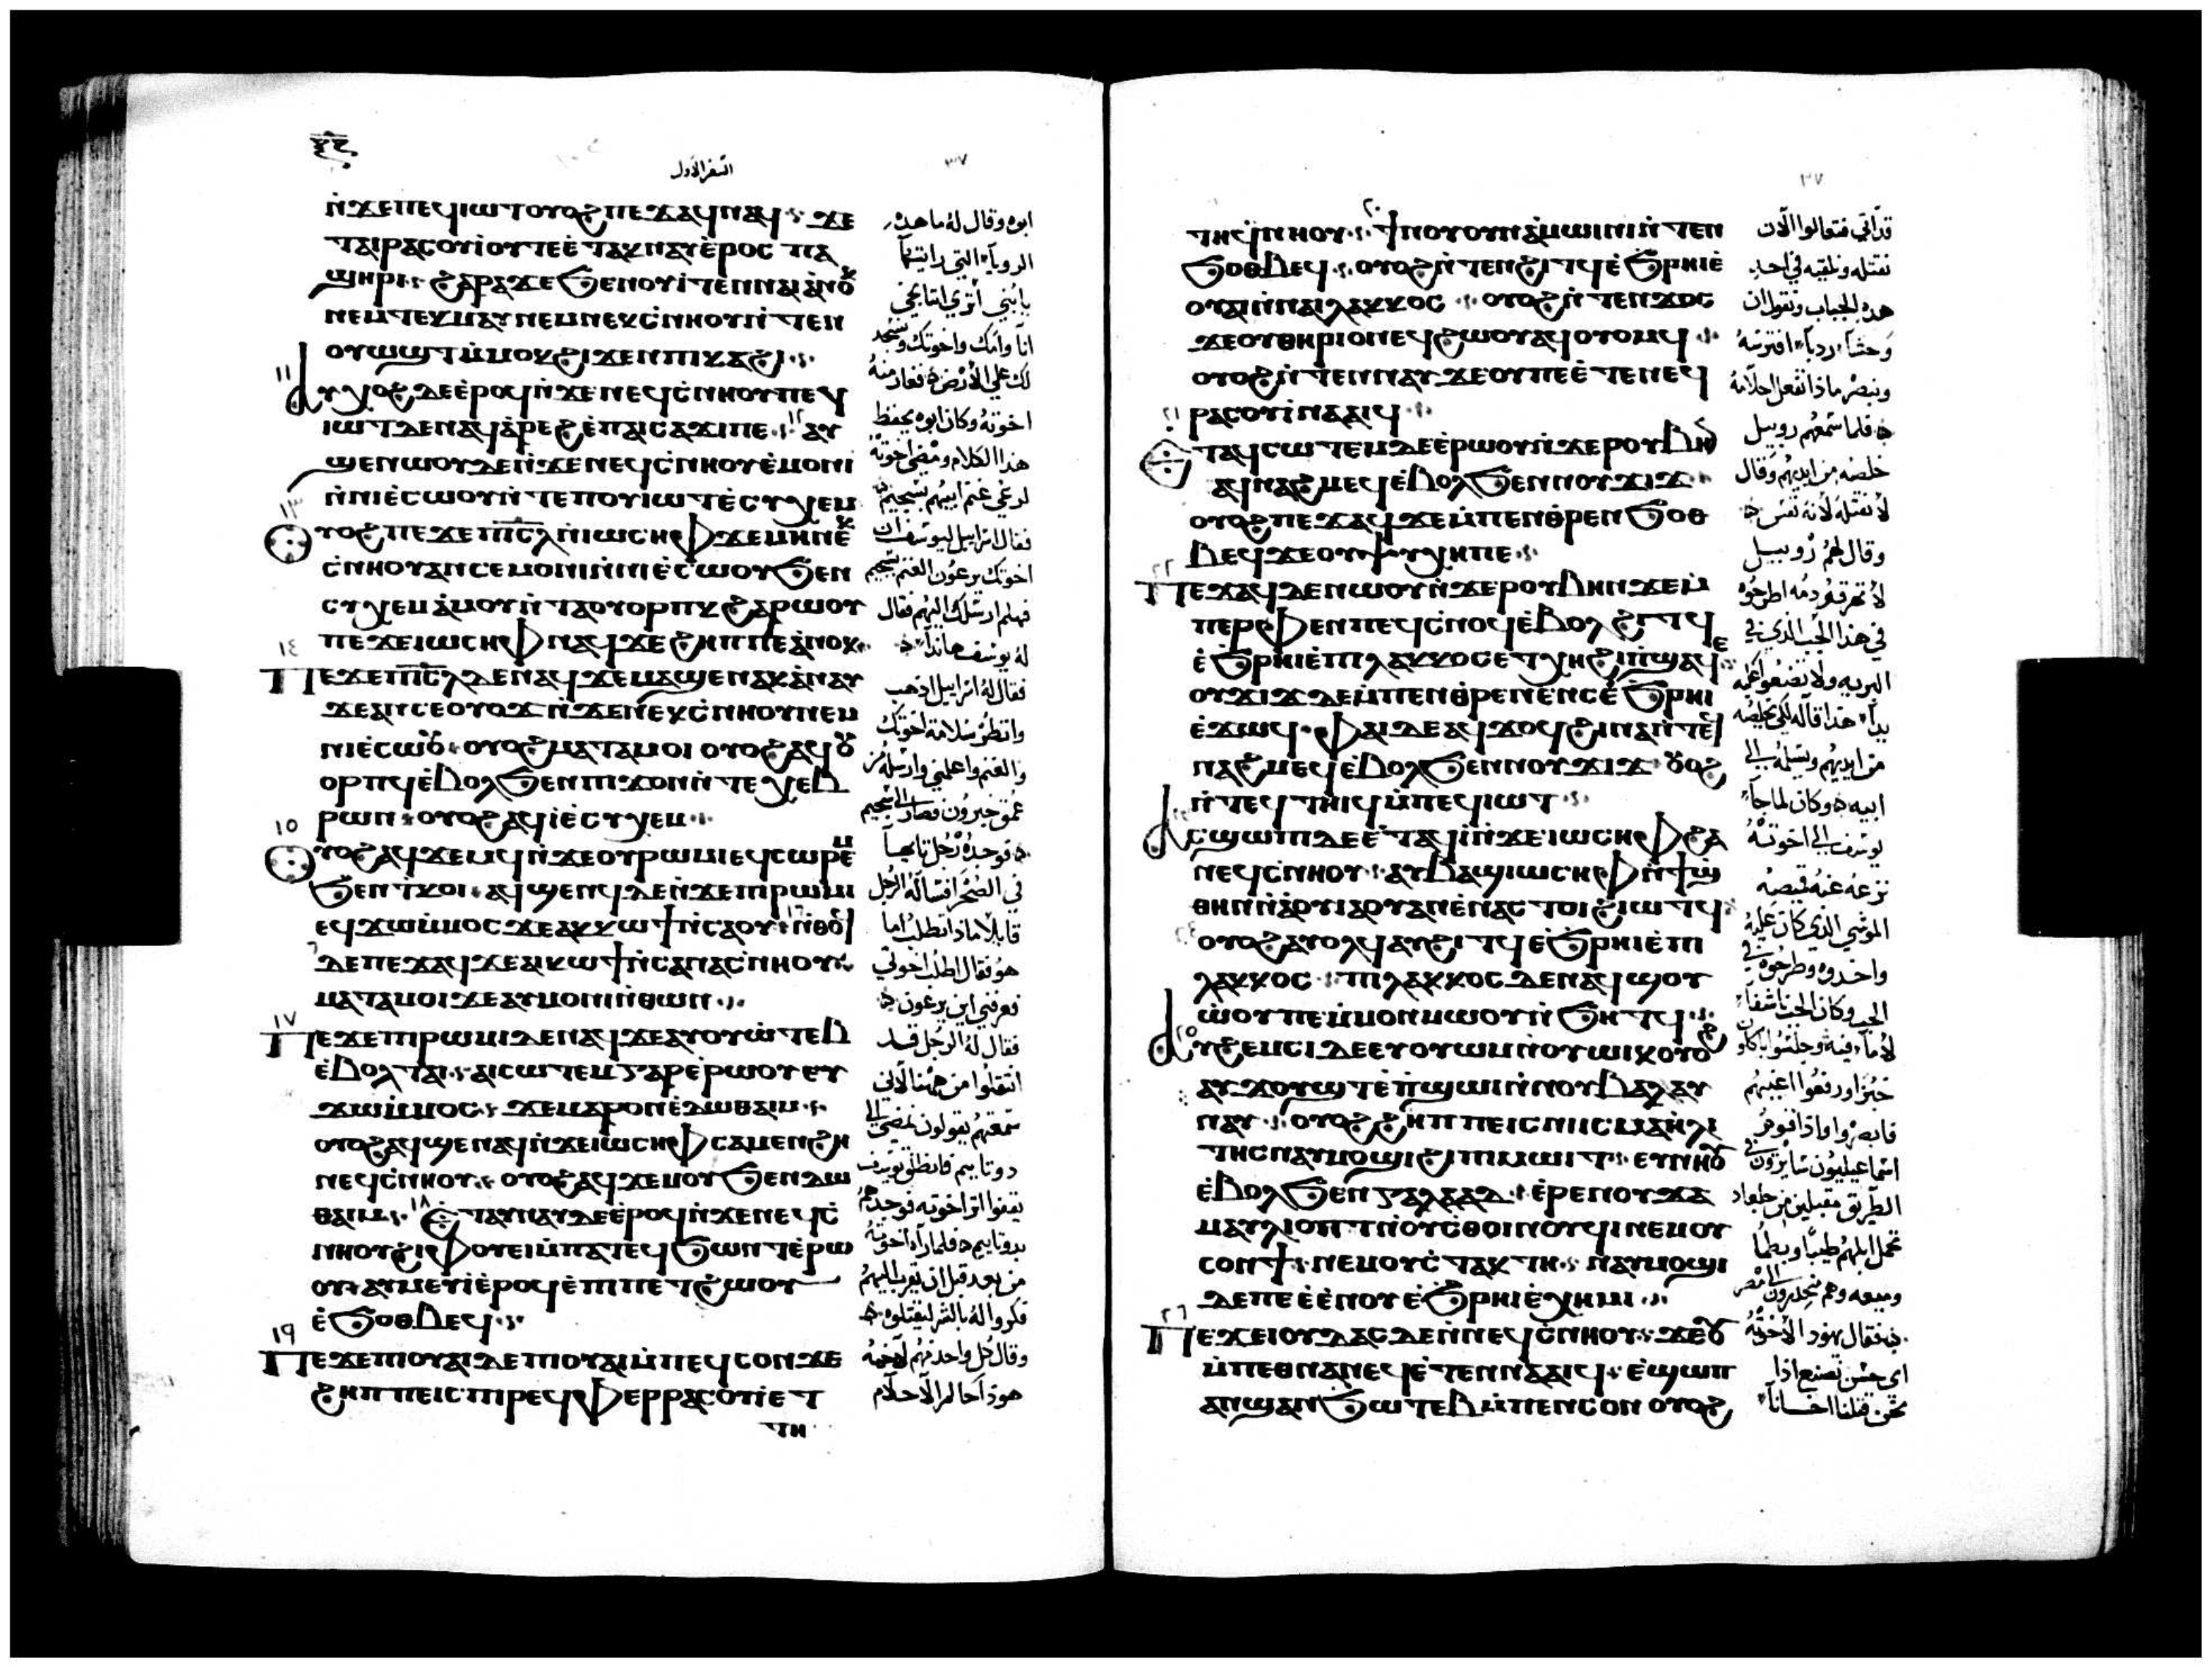 السفر الاول
ⲛ̀ϫⲉⲡⲉϥⲓⲱⲧ ⲟⲩⲟϩ ⲡⲉϫⲁϥ ⲛⲁϥ ϫⲉ
ⲧⲁⲓⲣⲁⲥⲟⲩⲓ̀ ⲟⲩ ⲧⲉ ⲉ̀ⲧⲁⲕⲛⲁⲩ ⲉ̀ⲣⲟⲥ ⲡⲁ
ϣⲏⲣⲓ ϩⲁⲣⲁ ϫⲉ ϧⲉⲛ ⲟⲩⲓ̀ ⲧⲉⲛⲛⲁⲓ̀ ⲁ̀ⲛⲟⲕ
ⲛⲉⲙ ⲧⲉⲕⲙⲁⲩ ⲛⲉⲙ ⲛⲉⲕⲥ̀ⲛⲏⲟⲩ ⲛ̀ⲧⲉⲛ
ⲟⲩⲱϣⲧ ⲙ̀ⲙⲟⲕ ϩⲓϫⲉⲛ ⲡⲓⲕⲁϩⲓ
١١ ⲁⲩⲭⲟϩ ⲇⲉ ⲉ̀ⲣⲟϥ ⲛ̀ϫⲉ ⲛⲉϥⲥ̀ⲛⲏⲟⲩ ⲡⲉϥ
ⲓⲱⲧ ⲇⲉ ⲛⲁϥⲁ̀ⲣⲉϩ ⲉ̀ⲡⲁⲓⲥⲁϫⲓ ⲡⲉ ١٢ ⲁⲩ
ϣⲉⲛⲱⲟⲩ ⲇⲉ ⲛ̀ϫⲉ ⲛⲉϥⲥ̀ⲛⲏⲟⲩ ⲉ̀ⲙⲟⲛⲓ
ⲛ̀ⲛⲓⲉ̀ⲥⲱⲟⲩ ⲛ̀ⲧⲉ ⲡⲟⲩⲓⲱⲧ ⲉ̀ⲥⲩⲭⲉⲙ
١٣ ⲟⲩⲟϩ ⲡⲉϫⲉ ⲡⲓⲥⲗ ⲛ̀ⲓⲱⲥⲏⲫ ϫⲉ ⲙⲏ ⲛⲉⲕ
ⲥ̀ⲛⲏⲟⲩ ⲁⲛ ⲥⲉⲙⲟⲛⲓ ⲛ̀ⲛⲓⲉ̀ⲥⲱⲟⲩ ϧⲉⲛ
ⲥⲩⲭⲉⲙ ⲁ̀ⲙⲟⲩ ⲛ̀ⲧⲁⲟⲩⲟⲣⲡⲕ ϩⲁⲣⲱⲟⲩ
ⲡⲉϫⲉ ⲓⲱⲥⲏⲫ ⲛⲁϥ ϫⲉ ϩⲏⲡⲡⲉ ⲁ̀ⲛⲟⲕ
١٤ ⲡⲉϫⲉ ⲡⲓⲥⲗ ⲇⲉ ⲛⲁϥ ϫⲉ ⲙⲁϣⲉⲛⲁⲕ ⲁ̀ⲛⲁⲩ
ϫⲉ ⲁⲛ ⲥⲉⲟⲩⲟϫ ⲛ̀ϫⲉ ⲛⲉⲕⲥ̀ⲛⲏⲟⲩ ⲛⲉⲙ
ⲛⲓⲉ̀ⲥⲱⲟⲩ ⲟⲩⲟϩ ⲙⲁⲧⲁⲙⲟⲓ ⲟⲩⲟϩ ⲁϥⲟⲩ
ⲟⲣⲡϥ ⲉ̀ⲃⲟⲗ ϧⲉⲛ ⲡⲓϫⲟⲛ ⲛ̀ⲧⲉ ⲭⲉⲃ
١٥ ⲣⲱⲛ ⲟⲩⲟϩ ⲁϥⲓ̀ ⲉ̀ⲥⲩⲭⲉⲙ
ⲟⲩⲟϩ ⲁϥϫⲉⲙϥ ⲛ̀ϫⲉ ⲟⲩⲣⲱⲙⲓ ⲉϥⲥⲱⲣⲉⲙ
ϧⲉⲛ ⲧ̀ⲕⲟⲓ ⲁϥϣⲉⲛϥ ⲇⲉ ⲛ̀ϫⲉ ⲡⲓⲣⲱⲙⲓ
ⲉϥϫⲱ ⲙ̀ⲙⲟⲥ ϫⲉ ⲁⲕⲕⲱϯ ⲛ̀ⲥⲁ ⲟⲩ ١٦ ⲛ̀ⲑⲟϥ
ⲇⲉ ⲡⲉϫⲁϥ ϫⲉ ⲁⲓⲕⲱϯ ⲛ̀ⲥⲁ ⲛⲁⲥ̀ⲛⲏⲟⲩ
ⲙⲁⲧⲁⲙⲟⲓ ϫⲉ ⲁⲩⲙⲟⲛⲓ ⲛ̀ⲑⲱⲛ
١٧ ⲡⲉϫⲉ ⲡⲓⲣⲱⲙⲓ ⲇⲉ ⲛⲁϥ ϫⲉ ⲁⲩⲟⲩⲱ̀ⲧⲉⲃ
ⲉ̀ⲃⲟⲗ ⲧⲁⲓ ⲁⲓⲥⲱⲧⲉⲙ ⲅⲁⲣ ⲉ̀ⲣⲱⲟⲩ ⲉⲩ
ϫⲱ ⲙ̀ⲙⲟⲥ ϫⲉ ⲙⲁⲣⲟⲛ ⲉ̀ⲇⲱⲑⲁⲓⲙ
ⲟⲩⲟϩ ⲁϥϣⲉⲛⲁϥ ⲛ̀ϫⲉ ⲓⲱⲥⲏⲫ ⲥⲁⲙⲉⲛϩⲏ
ⲛⲉϥⲥ̀ⲛⲏⲟⲩ ⲟⲩⲟϩ ⲁϥϫⲉⲙⲟⲩ ϧⲉⲛ ⲇⲱ
ⲑⲁⲓⲙ ١٨ ⲉ̀ⲧⲁⲩⲛⲁⲩ ⲇⲉ ⲉ̀ⲣⲟϥ ⲛ̀ϫⲉ ⲛⲉϥⲥ̀
ⲛⲏⲟⲩ ϩⲓⲫⲟⲩⲉⲓ ⲙ̀ⲡⲁⲧⲉϥϧⲱⲛⲧ ⲉ̀ⲣⲱ
ⲟⲩ ⲁⲩⲙⲉⲩⲓ̀ ⲉ̀ⲣⲟϥ ⲉ̀ⲡⲓⲡⲉⲧϩⲱⲟⲩ
ⲉ̀ϧⲟⲑⲃⲉϥ
١٩ ⲡⲉϫⲉ ⲡⲓⲟⲩⲁⲓ ⲇⲉ ⲡⲓⲟⲩⲁⲓ ⲙ̀ⲡⲉϥⲥⲟⲛ ϫⲉ
ϩⲏⲡⲡⲉ ⲓⲥ ⲡⲓⲣⲉϥⲫⲉⲣⲣⲁⲥⲟⲩⲓ̀ ⲉⲧ
ⲧⲏ
ابوه وقال له ما هده
الرويا التي رايتها
يا بني أترى انا نجي
انا وامك واخوتك ونسجد
لك علي الارض فغار منه
اخوته وكان ابوه يحفظ
هذا الكلام ومضي اخوته
لرعي غنم ابيهم بشجيم
فقال اسراييل ليوسف اليس
اخوتك يرعون الغنم بشجيم
فهلم ارسلك اليهم فقال
له يوسف هانذا
فقال له اسراييل ادهب
وانظر سلامة اخوتك
والغنم واعلمني وارسله من
عمق حبرون فصار الى شجيم
فوجده رجل تايها
في الصحرا فساله الرجل
قايلا ماذا تطلب اما
هو فقال اطلب اخوتي
فعرفني اين يرعون
فقال له الرجل قد
انتقلوا من ههنا لاني
سمعتهم يقولون نمضي الي
دوتاييم فانطلق يوسف
يقفوا اثر اخوته فوجدهم
بدوتاييم فلما راه اخوته
من بعد قبل ان يقرب اليهم
فكروا له بالشر ليقتلوه
وقال كل واحد منهم لاخيه
هودا حالم الاحلام
٣٧
ⲧⲏ ϥ̀ⲛⲏⲟⲩ ٢٠ ϯⲛⲟⲩ ⲟⲩⲛ ⲁ̀ⲙⲱⲓⲛⲓ ⲛ̀ⲧⲉⲛ
ϧⲟⲑⲃⲉϥ ⲟⲩⲟϩ ⲛ̀ⲧⲉⲛϩⲓⲧϥ ⲉ̀ϧⲣⲏⲓ ⲉ̀
ⲟⲩⲁⲓ ⲛ̀ⲛⲁⲓⲗⲁⲕⲕⲟⲥ ⲟⲩⲟϩ ⲛ̀ⲧⲉⲛϫⲟⲥ
ϫⲉ ⲟⲩⲑⲏⲣⲓⲟⲛ ⲉϥϩⲱⲟⲩ ⲁϥⲟⲩⲟⲙϥ
ⲟⲩⲟϩ ⲛ̀ⲧⲉⲛⲛⲁⲩ ϫⲉ ⲟⲩ ⲡⲉ ⲉ̀ⲧⲉ ⲛⲉϥ
٢١ ⲣⲁⲥⲟⲩⲓ̀ ⲛⲁⲁⲓϥ
ⲉⲧⲁϥⲥⲱⲧⲉⲙ ⲇⲉ ⲉ̀ⲣⲱⲟⲩ ⲛ̀ϫⲉ ⲣⲟⲩⲃⲏⲛ
ⲁϥⲛⲁϩⲙⲉϥ ⲉ̀ⲃⲟⲗ ϧⲉⲛ ⲛⲟⲩϫⲓϫ
ⲟⲩⲟϩ ⲡⲉϫⲁϥ ϫⲉ ⲙ̀ⲡⲉⲛⲑ̀ⲣⲉⲛϧⲟⲑ
ⲃⲉϥ ϫⲉ ⲟⲩⲯⲩⲭⲏ ⲡⲉ
٢٢ ⲡⲉϫⲁϥ ⲇⲉ ⲛⲱⲟⲩ ⲛ̀ϫⲉ ⲣⲟⲩⲃⲏⲛ ϫⲉ ⲙ̀
ⲡⲉⲣⲫⲉⲛ ⲡⲉϥⲥⲛⲟϥ ⲉ̀ⲃⲟⲗ ϩⲓⲧϥ
ⲉ̀ϧⲣⲏⲓ ⲉ̀ⲡⲓⲗⲁⲕⲕⲟⲥ ⲉⲧⲭⲏ ϩⲓ ⲡ̀ϣⲁϥⲉ
ⲟⲩϫⲓϫ ⲇⲉ ⲙ̀ⲡⲉⲛⲑ̀ⲣⲉⲛⲉ̀ⲛⲥ ⲉ̀ϧⲣⲏⲓ
ⲉ̀ϫⲱϥ ⲫⲁⲓ ⲇⲉ ⲁϥϫⲟϥ ϩⲓⲛⲁ ⲛ̀ⲧⲉϥ
ⲛⲁϩⲙⲉϥ ⲉ̀ⲃⲟⲗ ϧⲉⲛ ⲛⲟⲩϫⲓϫ ⲟⲩⲟϩ
ⲛ̀ⲧⲉϥⲧⲏⲓϥ ⲙ̀ⲡⲉϥⲓⲱⲧ
ⲁⲥϣⲱⲡⲓ ⲇⲉ ⲉ̀ⲧⲁϥⲓ̀ ⲛ̀ϫⲉ ⲓⲱⲥⲏⲫ ϩⲁ
ⲛⲉϥⲥ̀ⲛⲏⲟⲩ ⲁⲩⲃⲁϣ ⲓⲱⲥⲏⲫ ⲛ̀ϯϣ̀
ⲑⲏⲛ ⲛ̀ⲁⲟⲩⲓⲁⲟⲩⲁⲛ ⲉ̀ⲛⲁⲥⲧⲟⲓ ϩⲓⲱⲧϥ
٢٤ ⲟⲩⲟϩ ⲁⲩⲟⲗϥ ⲁⲩϩⲓⲧϥ ⲉ̀ϧⲣⲏⲓ ⲉ̀ⲡⲓ
ⲗⲁⲕⲕⲟⲥ ⲡⲓⲗⲁⲕⲕⲟⲥ ⲇⲉ ⲛⲁϥϣⲟⲩ
ⲱ̀ⲟⲩ ⲡⲉ ⲙ̀ⲙⲟⲛ ⲙⲱⲟⲩ ⲛ̀ϧⲏⲧϥ
٢٥ ⲁⲩϩⲉⲙⲥⲓ ⲇⲉ ⲉⲩⲟⲩⲱⲙ ⲛ̀ⲟⲩⲱⲓⲕ ⲟⲩⲟϩ
ⲁⲩϫⲟⲩϣⲧ ⲉ̀ⲡ̀ϣⲱⲓ ⲛ̀ⲛⲟⲩⲃⲁⲗ ⲁⲩ
ⲛⲁⲩ ⲟⲩⲟϩ ϩⲏⲡⲡⲉ ⲓⲥ ⲛⲓⲓⲥⲙⲁⲏ̀ⲗⲓ
ⲧⲏⲥ ⲛⲁⲩⲙⲟϣⲓ ϩⲓ ⲡⲓⲙⲱⲓⲧ ⲉⲩⲛⲏⲟⲩ
ⲉ̀ⲃⲟⲗ ϧⲉⲛ ⲅⲁⲗⲁⲁⲇ ⲉ̀ⲣⲉ ⲛⲟⲩϫⲁ
ⲙⲁⲩⲗⲓ ⲟⲡⲧ ⲛ̀ⲟⲩⲥ̀ⲑⲟⲓⲛⲟⲩϥⲓ ⲛⲉⲙ ⲟⲩ
ⲥⲟⲛϯ ⲛⲉⲙ ⲟⲩⲥ̀ⲧⲁⲕⲧⲏ ⲛⲁⲩⲙⲟϣⲓ
ⲇⲉ ⲡⲉ ⲉ̀ⲉ̀ⲛⲟⲩ ⲉ̀ϧⲣⲏⲓ ⲉ̀ⲭⲏⲙⲓ
٢٦ ⲡⲉϫⲉ ⲓⲟⲩⲇⲁⲥ ⲇⲉ ⲛ̀ⲛⲉϥⲥ̀ⲛⲏⲟⲩ ϫⲉ ⲟⲩ
ⲙ̀ⲡⲉⲑⲛⲁⲛⲉϥ ⲉ̀ⲧⲉⲛⲛⲁⲁⲓϥ ⲉ̀ϣⲱⲡ
ⲁⲛϣⲁⲛϧⲱⲧⲉⲃ ⲙ̀ⲡⲉⲛⲥⲟⲛ ⲟⲩⲟϩ
قد اتي فتعالوا الان
نقتله ونلقيه في احد
هده الجباب ونقول ان
وحشا رديا افترسه
وننصر ماذا تفعل احلامه
فلما سمعهم روبيل
خلصه من ايديهم وقال
لا نقتله لانه نفس
وقال لهم روبيل
لا تهرقوا دمه اطرحوه
في هذا الجب الذي في
البريه ولا تضعوا عليه
يدا هذا قاله لكي يخلصه
من ايديهم ويسلمه الي
ابيه وكان لما جا
يوسف الي اخوته
نزعوا عنه قميصه
الموشي الذي كان عليه
واخدوه وطرحوه في
الجب وكان الجب ناشفا
لا ما فيه وجلسوا ياكلوا
خبزا ورفعوا اعينهم
فابصروا واذا قوم
اسماعيليون سايرون في
الطريق مقبلين من جلعاد
تحمل ابلهم طيبا وبطما
وميعه وهم منحدرون الى مصر
فقال يهودا لاخوته
اي حسن نصنع اذا
نحن قتلنا اخانا